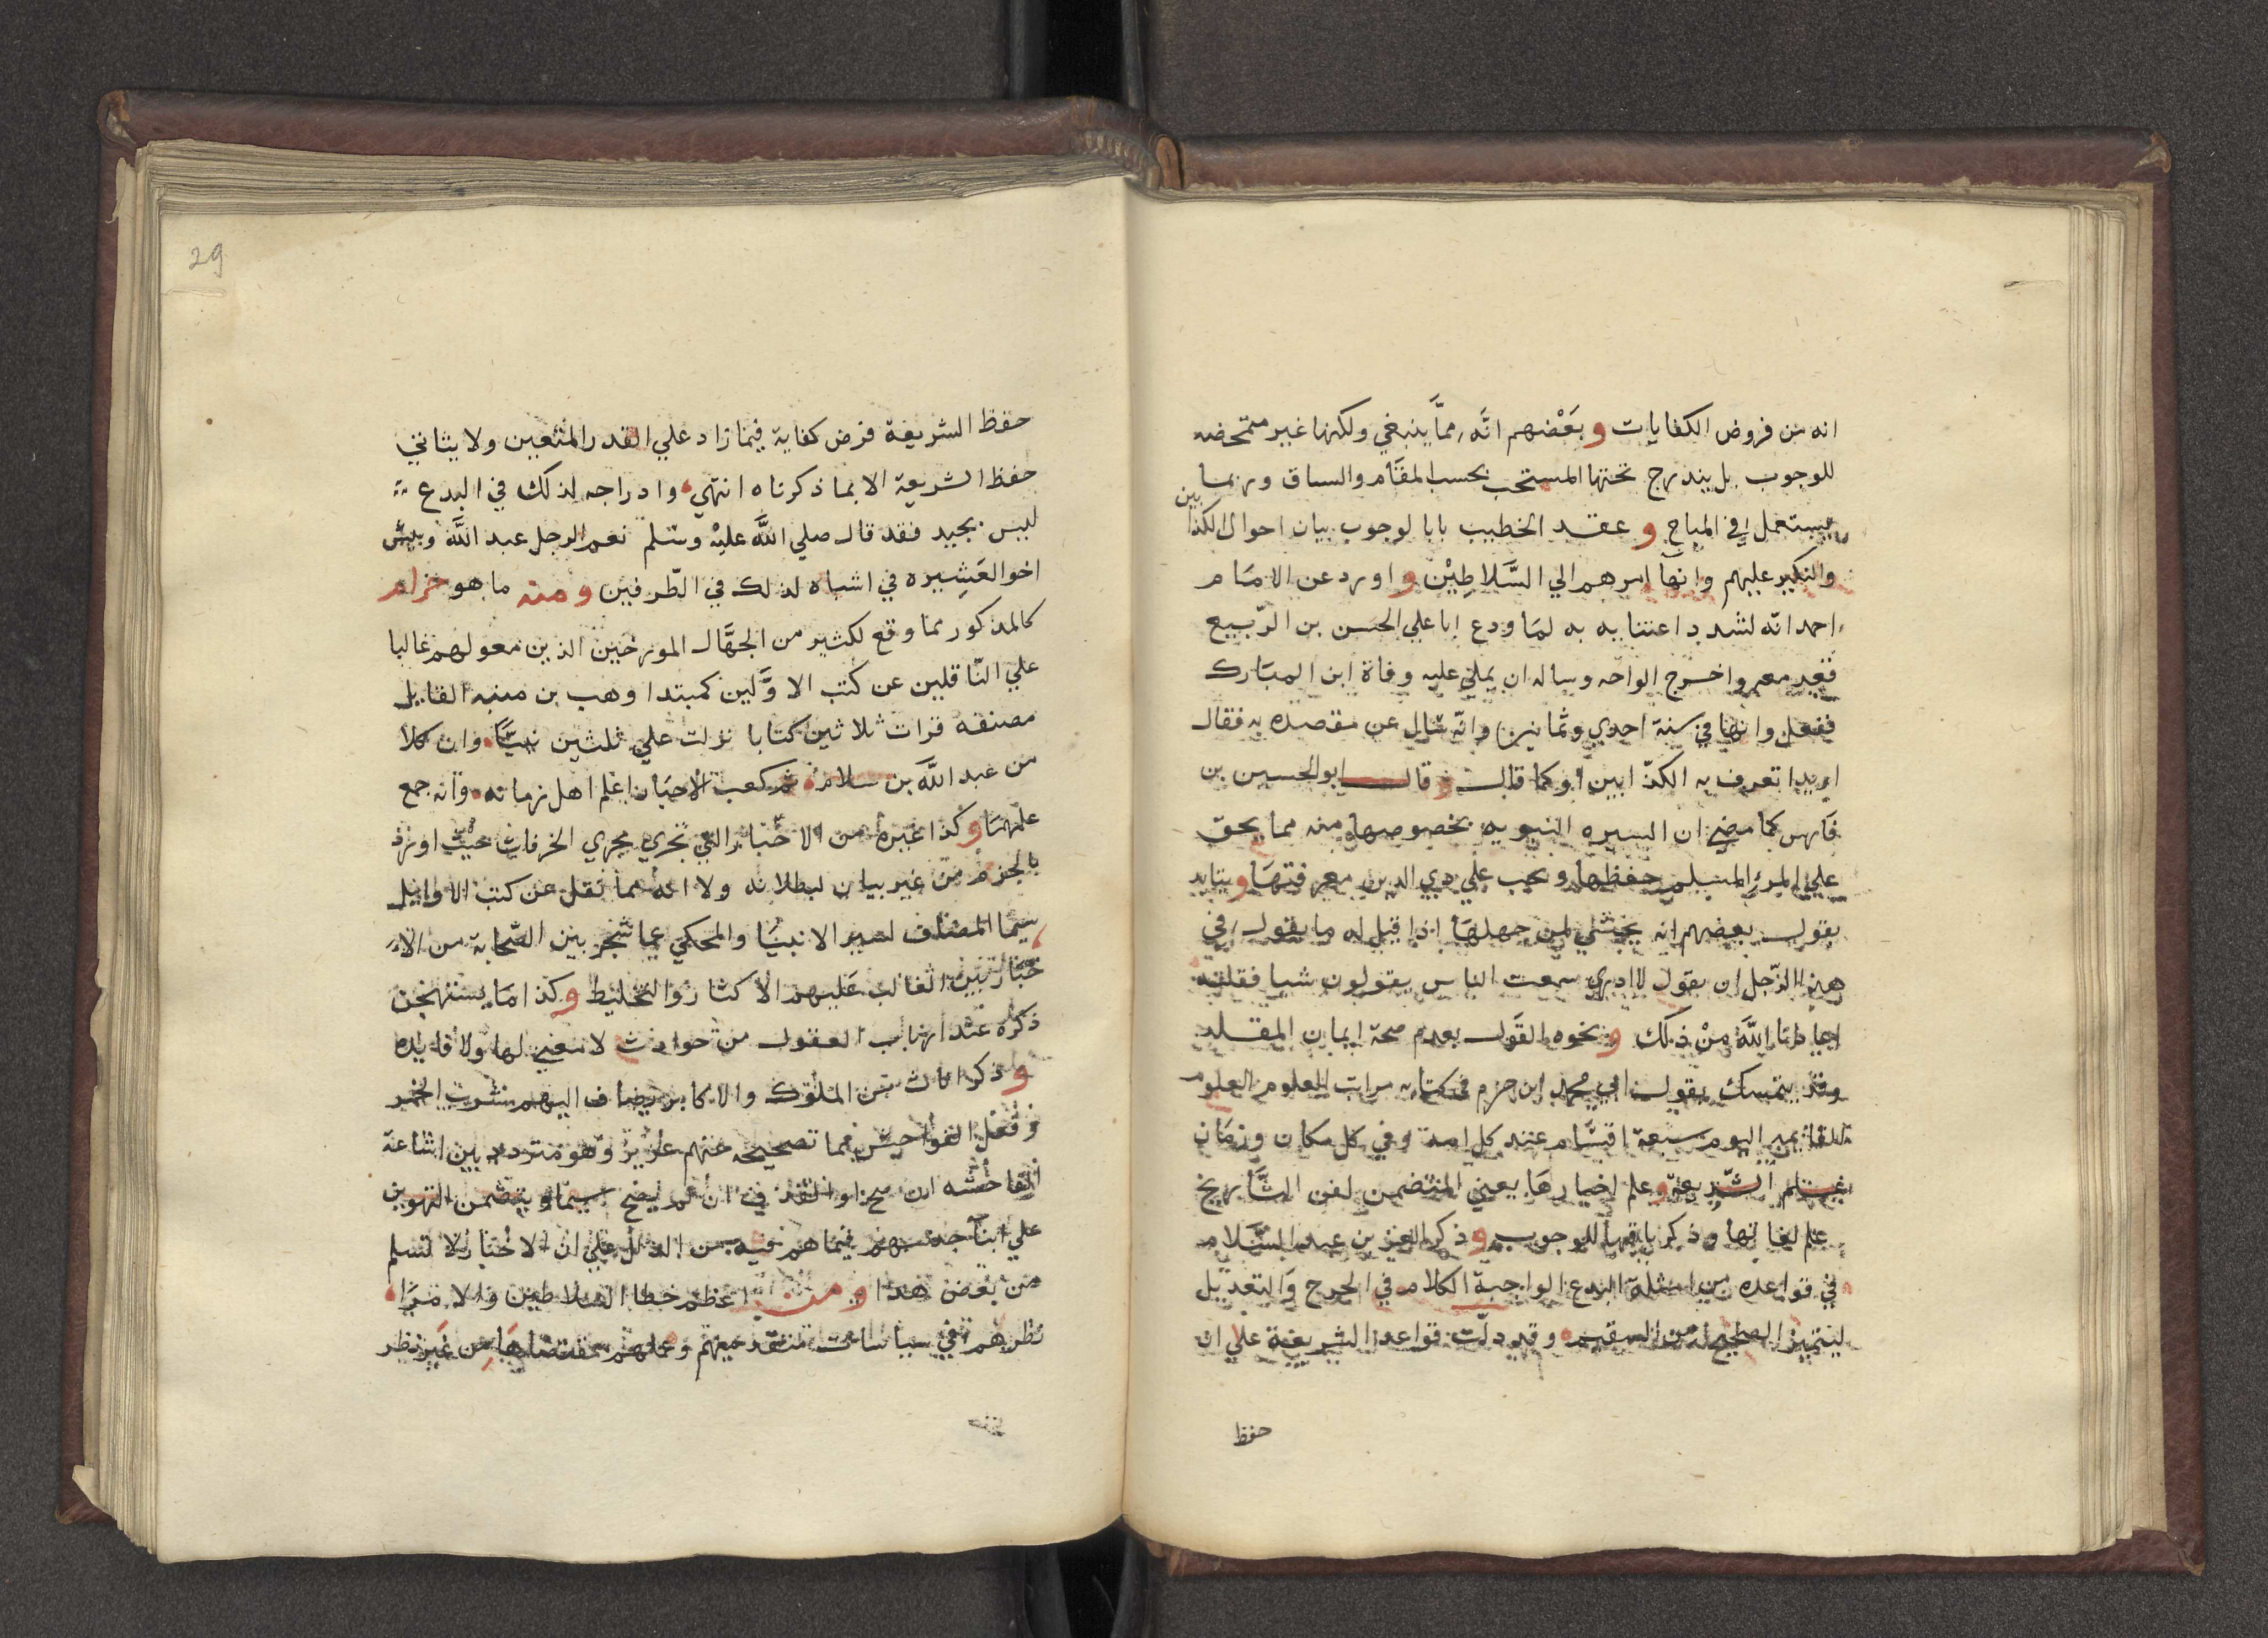 انه من فروض الكفايات وبَعْضهم انَّه مماَّ ينبغي ولكنها غير متمحضه
للوجوب بل يندرج تحتها المستحب بحسب المقَام والساق وربما
يستعمل في المباح وعقد الخطيب بابا لوجوب بيان احوال الكذا بين
والنكير عليهم وانها امرهم الي السَّلاطِيْن واورد عن الامَام
احمد انه لشدد اعتنايه به لمَا ودع ابا علي الحسن بن الرّبيع
فقير معبر واخرج الواحه وساله ان يملي عليه وفاة ابن المبَارك
ففعل وانها في سنة احدي وثمانين وانّه سال عن مقصده به فقال
اريد اتعرف به الكذّابين او كما قال وقال ابو الحسين بن
فَارس كما مضي ان السيره النبويه بخصوصها منه مما يحق
علي المرء المسلم حفظها ويجب علي ذي الدين معرفتهَا ويتايد
بقول بعضهم انه يخشي لمن جهلهَا اذا قيل له ما يقول في
هذا الرّجل ان يقول لا ادري سمعت الناس يقولون شيا فقلته
اعاذنَا اللَّه منْ ذلك ونحوه القَول بعدم صحة ايمان المقلد
وقد يتمسك بقول ابي محمد ابن حزم في كتابه مراتب العلوم العلوم
اليوم سبعة اقسَام عند كل امة وفي كل مكان وزمَان
علم الشّريعة وعلم اخبارهَا يعني المتضمن لفن التَّاريخ
علم لغاتها وذكر باقيها للوجوب وذكر العز بن عبد السَّلام
في قواعده من امثلة البدع الواجبة الكلام في الجرح وَالتعديل
ليتميز الصحيح له من السقيم وقد دلّت قواعد الشريعة علي ان
حفظ
29
حفظ الشريعة فرض كفاية فيما زاد علي القدر المتعين ولا يتاتي
حفظ الشريعة الا بما ذكرناه انتهي وادراجه لذلك في البدع
ليس بجيد فقد قال صلي اللَّه عليْه وسَلم نعم الرجل عبد اللَّه وبيس
اخو العَشِيره في اشباه لذلك في الطّرفين ومنه ما هو حرام
كالمذكور مما وقع لكثير من الجهَّال المورخين الذين معولهم غالبا
علي النّاقلين عن كتب الاوَّلين كمبتدا وهب بن منبه القايل
مصنفه قرات ثلاثين كتابا نزلت علي ثلثين نبيّا وان كلا
من عبد اللَّه بن سلام ثم كعب الاحبَار اعلم اهل زمانه وانه جمع
علمهمَا وكذا غيره من الاخبار التي تجري مجري الخرفات حيث اورد
بالجزم من غير بيان لبطلانه ولا انه مما نقل عن كتب الاوايل
سيما المضاف لسير الانبيَا والمحكي عما شجر بين الصّحابة من الا
خبَاريين الغالب عَليهم الاكثار والتخليط وكذا مَا يستهجن
ذكره عند ارباب العقول من حوادث لا معني لها ولا فايده
وذكر اناث من الملوك والاكابر يضاف اليهم شرب الخمر
وفعل الفواحش فيما تصحيحه عنهم عزيز وهو متردد بين اشاعة
الفاحشه ان صح او القذف ان لم يصح سيما ويتضمن التهوين
علي ابنا جنسهم فيما هم فيه من الزلل علي ان الاخبَار لا تسلم
من بعض هذا ومن اعظم خطا السلاطين والامرَا
نظرهم في سياسات متقدميهم وعملهم بمقتضاهَا من غير نظر